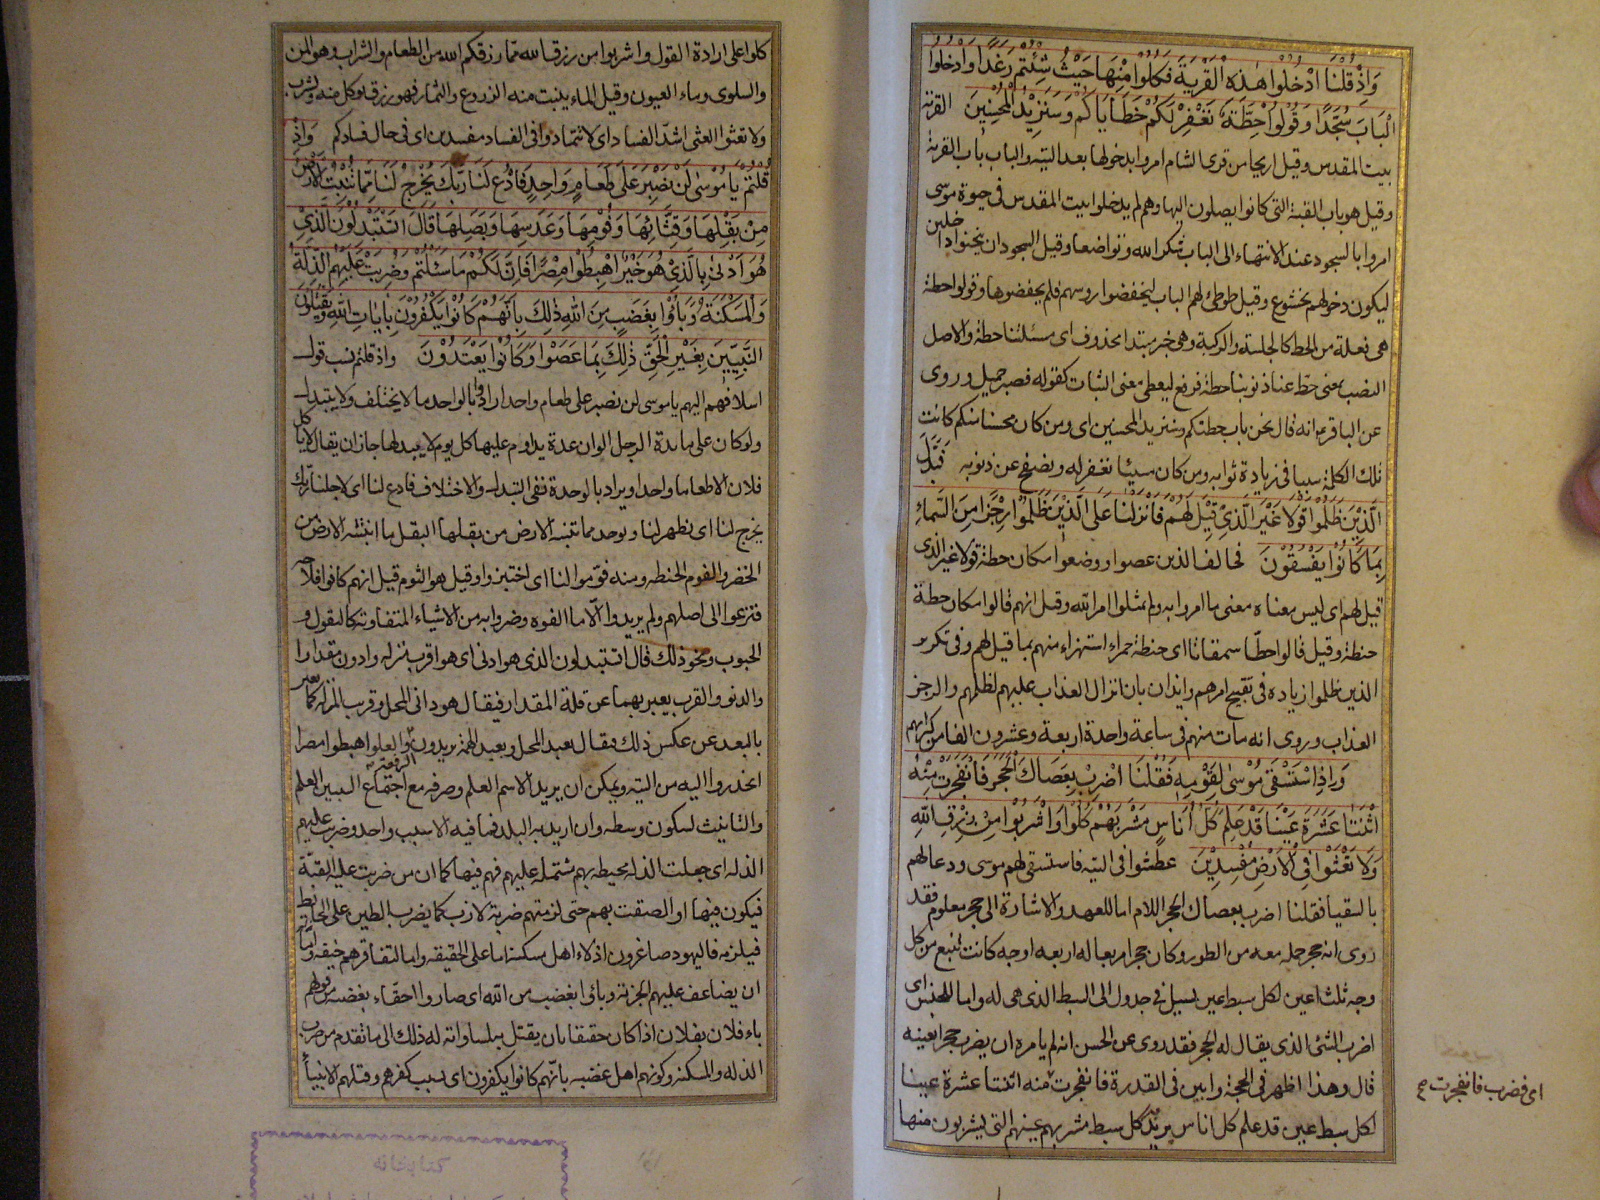 وَاِذْ قُلْنَا ادْخُلُوا هٰذِهِ الْقَرْيَةَ فَكُلُوْا مِنْهَا حَيْثُ شِئْتُمْ رَغَدًا وَادْخُلُوا
الْبَابَ سُجَّدًا وَقُوْلُوا حِطَّةٌ نَغْفِرْ لَكُمْ خَطَايَاكُمْ وَسَنَزِيْدُ الْمُحْسِنِيْنَ القرية
بيت المقدس وقيل اريحا من قرى الشام امروا بدخولها بعد التيه والباب باب القرية
وقيل هو باب القبة التي كانوا يصلون اليها وهم لم يدخلوا بيت المقدس في حيوة موسى
امروا بالسجود عند الانتهاء الى الباب شكرا لله وتواضعا وقيل السجود ان ينحنوا داخلين
ليكون دخولهم بخشوع وقيل طوطئ لهم الباب ليخفضوا رؤسهم فلم يخفضوها وقولوا حطة
هي فعلة من الحط كالجلسة والركبة وهي خبر مبتدا محذوف اى مسئلتنا حطة والاصل
النصب بمعنى حط عنا ذنوبنا حطة فرفع ليعطى معنى الثبات كقوله فصبر جميل وروى
عن الباقر انه قال نحن باب حطتكم وسنزيد المحسنين اى ومن كان محسنا منكم كانت
تلك الكلمة سببا في زيادة ثوابه ومن كان مسيئا نغفر له ونصفح عن ذنوبه فَبَدَّلَ
الَّذِيْنَ ظَلَمُوْا قَوْلًا غَيْرَ الَّذِيْ قِيْلَ لَهُمْ فَاَنْزَلْنَا عَلَى الَّذِيْنَ ظَلَمُوْا رِجْزًا مِنَ السَّمَاءِ
بِمَا كَانُوْا يَفْسُقُوْنَ فخالف الذين عصوا ووضعوا مكان حطة قولا غير الذى
قيل لهم اى ليس معناه معنى ما امروا به ولم يمتثلوا امر الله وقيل انهم قالوا مكان حطة
حنطة وقيل قالوا حطا سمقاثا اى حنطة حمراء استهزاء منهم بما قيل لهم وفي تكرير
الذين ظلموا زيادة في تقبيح امرهم وايذان بان انزال العذاب عليهم لظلمهم والرجز
العذاب وروى انه مات منهم في ساعة واحدة اربعة وعشرون الفا من كبرائهم
وَاِذِ اسْتَسْقٰى مُوْسٰى لِقَوْمِهِ فَقُلْنَا اضْرِبْ بِعَصَاكَ الْحَجَرَ فَانْفَجَرَتْ مِنْهُ
اثْنَتَا عَشْرَةَ عَيْنًا قَدْ عَلِمَ كُلُّ اُنَاسٍ مَشْرَبَهُمْ كُلُوْا وَاشْرَبُوْا مِنْ رِزْقِ اللّٰهِ
وَلَا تَعْثَوْا فِي الْاَرْضِ مُفْسِدِيْنَ عطشوا في التيه فاستسقى لهم موسى ودعا لهم
بالسقيا فقلنا اضرب بعصاك الحجر اللام اما للعهد والاشارة الى حجر معلوم فقد
روى انه حجر حمله معه من الطور وكان حجرا مربعا له اربعة اوجه كانت تنبع من كل
وجه ثلث اعين لكل سبط عين تسيل في جدول الى السبط الذى هي له واما للجنس اى
اضرب الشئ الذى يقال له الحجر فقد روى عن الحسن انه لم يامره ان يضرب حجرا بعينه
قال وهذا اظهر في الحجة وابين في القدرة فانفجرت منه اثنتا عشرة عينا
اى فضرب فانفجرت
لكل سبط عين قد علم كل اناس يريد كل سبط مشربهم عينهم التي يشربون منها
كلوا على ارادة القول واشربوا من رزق الله مما رزقكم الله من الطعام والشراب وهو المن
والسلوى وماء العيون وقيل الماء ينبت منه الزروع والثمار فهو رزق يؤكل منه ويشرب
ولا تعثوا العثى اشد الفساد اى لا تتمادوا في الفساد مفسدين اى في حال فسادكم وَاِذْ
قُلْتُمْ يَا مُوْسٰى لَنْ نَصْبِرَ عَلٰى طَعَامٍ وَاحِدٍ فَادْعُ لَنَا رَبَّكَ يُخْرِجْ لَنَا مِمَّا تُنْبِتُ الْاَرْضُ
مِنْ بَقْلِهَا وَقِثَّائِهَا وَفُوْمِهَا وَعَدَسِهَا وَبَصَلِهَا قَالَ اَتَسْتَبْدِلُوْنَ الَّذِيْ
هُوَ اَدْنٰى بِالَّذِيْ هُوَ خَيْرٌ اهْبِطُوْا مِصْرًا فَاِنَّ لَكُمْ مَا سَئَلْتُمْ وَضُرِبَتْ عَلَيْهِمُ الذِّلَّةُ
وَالْمَسْكَنَةُ وَبَاؤُا بِغَضَبٍ مِنَ اللّٰهِ ذٰلِكَ بِاَنَّهُمْ كَانُوْا يَكْفُرُوْنَ بِاٰيَاتِ اللّٰهِ وَيَقْتُلُوْنَ
النَّبِيِّيْنَ بِغَيْرِ الْحَقِّ ذٰلِكَ بِمَا عَصَوْا وَكَانُوْا يَعْتَدُوْنَ واذ قلتم نسب قول
اسلافهم اليهم يا موسى لن نصبر على طعام واحد ارادوا بالواحد ما لا يختلف ولا يتبدل
ولو كان على مائدة الرجل الوان عدة يداوم عليها كل يوم لا يبدلها جاز ان يقال لا ياكل
فلان الا طعاما واحدا ويراد بالوحدة نفي التبدل والاختلاف فادع لنا اى لاجلنا ربك
يخرج لنا اى يظهر لنا ويوجد مما تنبت الارض من بقلها البقل ما انبتته الارض من
الخضر والفوم الحنطة ومنه فوموا لنا اى اختبزوا وقيل هو الثوم قيل انهم كانوا فلاحة
فنزعوا الى اصلهم ولم يريدوا الا ما الفوه وضروا به من الاشياء المتفاوتة كالبقول و
الحبوب ونحو ذلك قال اتستبدلون الذى هو ادنى اى هو اقرب منزلة وادون مقدارا
والدنو والقرب يعبر بهما عن قلة المقدار فيقال هو دانى المحل وقريب المنزلة كما يعبر
بالبعد عن عكس ذلك فيقال بعيد المحل وبعيد الهمة يريدون الرفعة والعلو اهبطوا مصرا
انحدروا اليه من التيه ويمكن ان يريد الاسم العلم وصرفه مع اجتماع السببين العلم
والتانيث لسكون وسطه وان اريد به البلد فما فيه الا سبب واحد وضربت عليهم
الذلة اى جعلت الذلة محيطة بهم مشتملة عليهم فهم فيها كما ان من ضربت عليه القبة
فيكون فيها او الصقت بهم حتى لزمتهم ضربة لازب كما يضرب الطين على الحائط
فيلزمه فاليهود صاغرون اذلاء اهل مسكنة اما على الحقيقة واما لتفاقرهم خيفة
ان يضاعف عليهم الجزية وباؤا بغضب من الله اى صاروا احقاء بغضبه من قولهم
باء فلان بفلان اذا كان حقيقا بان يقتل به لمساواته له ذلك الى ما تقدم من ضرب
الذلة والمسكنة وكونهم اهل غضبه بانهم كانوا يكفرون اى بسبب كفرهم وقتلهم الانبياء